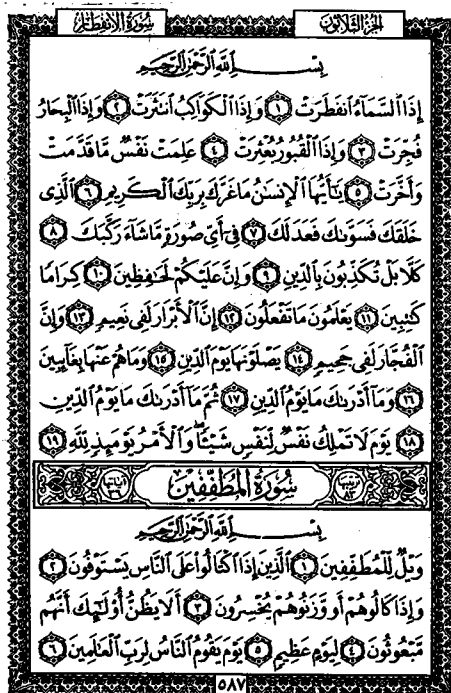 سُورَةُ الانفِطَار
الجُزْءُ الثَّلَاثُونَ
بِسْمِ اللَّهِ الرَّحْمَٰنِ الرَّحِيمِ
إِذَا ٱلسَّمَآءُ ٱنفَطَرَتْ ١ وَإِذَا ٱلْكَوَاكِبُ ٱنتَثَرَتْ ٢ وَإِذَا ٱلْبِحَارُ
فُجِّرَتْ ٣ وَإِذَا ٱلْقُبُورُ بُعْثِرَتْ ٤ عَلِمَتْ نَفْسٌ مَّا قَدَّمَتْ
وَأَخَّرَتْ ٥ يَٰٓأَيُّهَا ٱلْإِنسَٰنُ مَا غَرَّكَ بِرَبِّكَ ٱلْكَرِيمِ ٦ ٱلَّذِى
خَلَقَكَ فَسَوَّىٰكَ فَعَدَلَكَ ٧ فِىٓ أَىِّ صُورَةٍ مَّا شَآءَ رَكَّبَكَ ٨
كَلَّا بَلْ تُكَذِّبُونَ بِٱلدِّينِ ٩ وَإِنَّ عَلَيْكُمْ لَحَٰفِظِينَ ١٠ كِرَامًا
كَٰتِبِينَ ١١ يَعْلَمُونَ مَا تَفْعَلُونَ ١٢ إِنَّ ٱلْأَبْرَارَ لَفِى نَعِيمٍ ١٣ وَإِنَّ
ٱلْفُجَّارَ لَفِى جَحِيمٍ ١٤ يَصْلَوْنَهَا يَوْمَ ٱلدِّينِ ١٥ وَمَا هُمْ عَنْهَا بِغَآئِبِينَ
١٦ وَمَآ أَدْرَىٰكَ مَا يَوْمُ ٱلدِّينِ ١٧ ثُمَّ مَآ أَدْرَىٰكَ مَا يَوْمُ ٱلدِّينِ
١٨ يَوْمَ لَا تَمْلِكُ نَفْسٌ لِّنَفْسٍ شَيْـًٔا ۖ وَٱلْأَمْرُ يَوْمَئِذٍ لِّلَّهِ ١٩
ترتيبها ٨٣ سُورَةُ المُطَفِّفِينَ آياتها ٣٦
بِسْمِ اللَّهِ الرَّحْمَٰنِ الرَّحِيمِ
وَيْلٌ لِّلْمُطَفِّفِينَ ١ ٱلَّذِينَ إِذَا ٱكْتَالُوا۟ عَلَى ٱلنَّاسِ يَسْتَوْفُونَ ٢
وَإِذَا كَالُوهُمْ أَو وَّزَنُوهُمْ يُخْسِرُونَ ٣ أَلَا يَظُنُّ أُو۟لَٰٓئِكَ أَنَّهُم
مَّبْعُوثُونَ ٤ لِيَوْمٍ عَظِيمٍ ٥ يَوْمَ يَقُومُ ٱلنَّاسُ لِرَبِّ ٱلْعَٰلَمِينَ ٦
٥٨٧